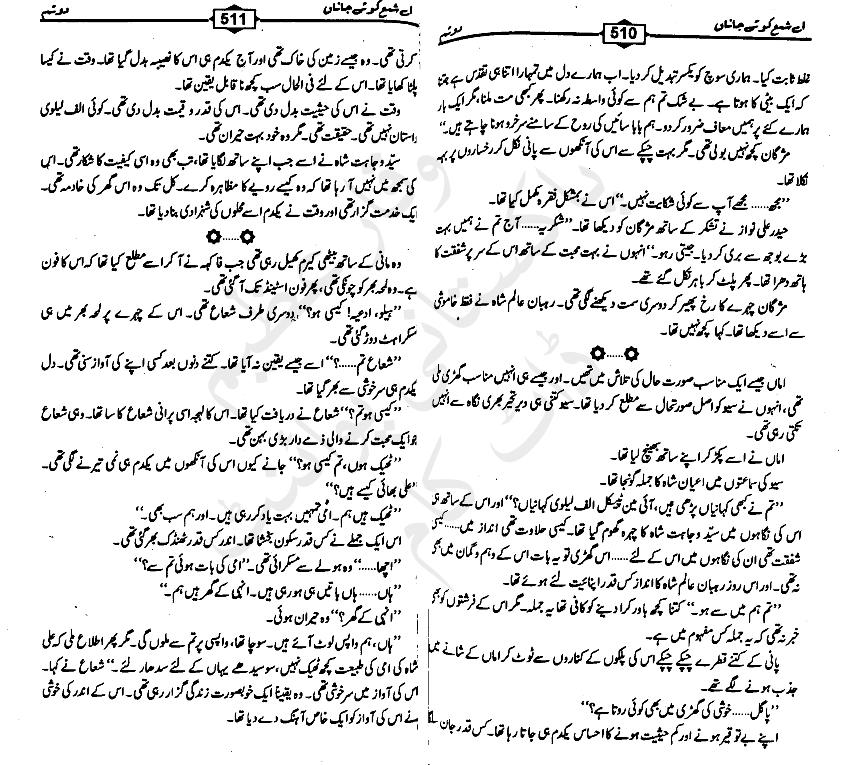 اے شمع کوئے جاناں
510
غلط ثابت کیا۔ ہماری سوچ کو یکسر تبدیل کر دیا۔ اب ہمارے دل میں تمہارا اتنا ہی تقدس ہے جتنا
کہ ایک بیٹی کا ہوتا ہے۔ بے شک تم ہم سے کوئی واسطہ نہ رکھنا۔ پھر کبھی مت ملنا، مگر ایک بار
ہمارے کئے پر ہمیں معاف ضرور کر دو۔ ہم بابا سائیں کی روح کے سامنے سرخرو ہونا چاہتے ہیں۔“
مژگان کچھ نہیں بولی تھی۔ مگر بہت چپکے سے اس کی آنکھوں سے پانی نکل کر رخساروں پر بہہ
نکلا تھا۔
”مجھ...... مجھے آپ سے کوئی شکایت نہیں۔“ اس نے بمشکل فقرہ مکمل کیا تھا۔
حیدر علی نواز نے تشکر کے ساتھ مژگان کو دیکھا تھا۔ ”شکریہ...... آج تم نے ہمیں بہت
بڑے بوجھ سے بری کر دیا۔ جیتی رہو۔“ انہوں نے بہت محبت کے ساتھ اس کے سر پر شفقت کا
ہاتھ دھرا تھا۔ پھر پلٹ کر باہر نکل گئے تھے۔
مژگان چہرے کا رخ پھیر کر دوسری سمت دیکھنے لگی تھی۔ رہبان عالم شاہ نے فقط خاموشی
سے اسے دیکھا تھا۔ کہا کچھ نہیں تھا۔
اماں جیسے ایک مناسب صورت حال کی تلاش میں تھیں۔ اور جیسے ہی انہیں مناسب گھڑی ملی
تھی، انہوں نے سیو کو اصل صورتحال سے مطلع کر دیا تھا۔ سیو کتنی ہی دیر تحیر بھری نگاہ سے انہیں
تکتی رہی تھی۔
اماں نے اسے پکڑ کر اپنے ساتھ بھینچ لیا تھا۔
سیو کی سماعتوں میں اعیان شاہ کا جملہ گونجا تھا۔
”تم نے کبھی کہانیاں پڑھی ہیں، آئی مین ٹپیکل الف لیلوی کہانیاں؟“ اور اس کے ساتھ ہی
اس کی نگاہوں میں سیّد وجاہت شاہ کا چہرہ گھوم گیا تھا۔ کیسی حلاوت تھی انداز میں...... کیسی
شفقت تھی ان کی نگاہوں میں اس کے لئے...... اس گھڑی تو یہ بات اس کے وہم و گمان میں بھی
نہ تھی۔ اور اس روز رہبان عالم شاہ کا انداز کس قدر اپنائیت لئے ہوئے تھا۔
”تم ہم میں سے ہو۔“ کتنا کچھ باور کرا دینے کو کافی تھا یہ جملہ۔ مگر اس کے فرشتوں کو بھی
خبر نہ تھی کہ یہ جملہ کس مفہوم میں ہے۔
پانی کے کتنے قطرے چپکے چپکے اس کی پلکوں کے کناروں سے ٹوٹ کر اماں کے شانے میں
جذب ہونے لگے تھے۔
”پاگل...... خوشی کی گھڑی میں بھی کوئی روتا ہے؟“
اپنے بے توقیر ہونے اور کم حیثیت ہونے کا احساس یکدم ہی جاتا رہا تھا۔ کس قدر جان
اے شمع کوئے جاناں
511
کرتی تھی۔ وہ جیسے زمین کی خاک تھی اور آج یکدم ہی اس کا نصیب بدل گیا تھا۔ وقت نے کیسا
پلٹا کھایا تھا۔ اس کے لئے فی الحال سب کچھ نا قابل یقین تھا۔
وقت نے اس کی حیثیت بدل دی تھی۔ اس کی قدر و قیمت بدل دی تھی۔ کوئی الف لیلوی
داستان نہیں تھی۔ حقیقت تھی۔ مگر وہ خود بہت حیران تھی۔
سیّد وجاہت شاہ نے اسے جب اپنے ساتھ لگایا تھا، تب بھی وہ اسی کیفیت کا شکار تھی۔ اس
کی سمجھ میں نہیں آ رہا تھا کہ وہ کیسے رویے کا مظاہرہ کرے۔ کل تک وہ اس گھر کی خادمہ تھی۔
ایک خدمت گزار تھی اور وقت نے یکدم اسے محلوں کی شہزادی بنا دیا تھا۔
وہ مانی کے ساتھ بیٹھی کیرم کھیل رہی تھی جب فاکہہ نے آ کر اسے مطلع کیا تھا کہ اس کا فون
ہے۔ وہ لمحہ بھر کو چونکی تھی، پھر فون اسٹینڈ تک آ گئی تھی۔
”ہیلو، ادعیہ! کیسی ہو؟“ دوسری طرف شعاع تھی۔ اس کے چہرے پر لمحہ بھر میں ہی
مسکراہٹ دوڑ گئی تھی۔
”شعاع تم......؟“ اسے جیسے یقین نہ آیا تھا۔ کتنے دنوں بعد کسی اپنے کی آواز سنی تھی۔ دل
یکدم ہی سرخوشی سے بھر گیا تھا۔
”کیسی ہو تم؟“ شعاع نے دریافت کیا تھا۔ اس کا لہجہ اسی پرانی شعاع کا سا تھا۔ وہی شعاع
جو ایک محبت کرنے والی ذے دار بڑی بہن تھی۔
”ٹھیک ہوں، تم کیسی ہو؟“ جانے کیوں اس کی آنکھوں میں یکدم ہی نمی تیرنے لگی تھی۔
”علی بھائی کیسے ہیں؟“
”ٹھیک ہیں ہم۔ امّی تمہیں بہت یاد کر رہی ہیں۔ اور ہم سب بھی۔“
اس ایک جملے نے کس قدر سکون بخشا تھا۔ اندر کس قدر ٹھنڈک بھر گئی تھی۔
”اچھا......“ وہ ہولے سے مسکرائی تھی۔ ”امی کی بات ہوئی تم سے؟“
”ہاں...... ہاں باتیں ہی ہو رہی ہیں۔ انہی کے گھر ہیں ہم۔“
”انہی کے گھر؟“ وہ حیران ہوئی۔
”ہاں، ہم واپس لوٹ آئے ہیں۔ سوچا تھا، واپسی پر تم سے ملوں گی۔ مگر پھر اطلاع ملی کہ علی
شاہ کی امی کی طبیعت کچھ ٹھیک نہیں، سو سیدھے یہاں کے لئے سدھار لئے۔“ شعاع نے کہا۔
اس کی آواز میں سرخوشی تھی۔ وہ یقیناً ایک خوبصورت زندگی گزار رہی تھی۔ اس کے اندر کی خوشی
نے اس کی آواز کو ایک خاص آہنگ دے دیا تھا۔